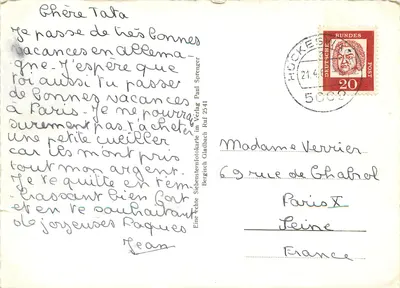 Chère Tata
Je passe de très bonnes
vacances en allema-
gne. J'espère que
toi aussi tu passe
de bonnes vacances
à Paris. Je ne pourrai
surement pas t'acheter
une petite cueiller
car ils m'ont pris
tout mon argent.
Je te quitte en t'em-
brassant bien fort
et en te souhaitant
de joyeuses Paques
Jean
Eine echte Siebensternfotokarte im Verlag Paul Sprenger
Bergisch Gladbach Ruf 2541
HÜCKES
21.4.
DEUTSCHE BUNDESPOST
20
Madame Verrier
69 rue de Chabrol
Paris X
Seine
France